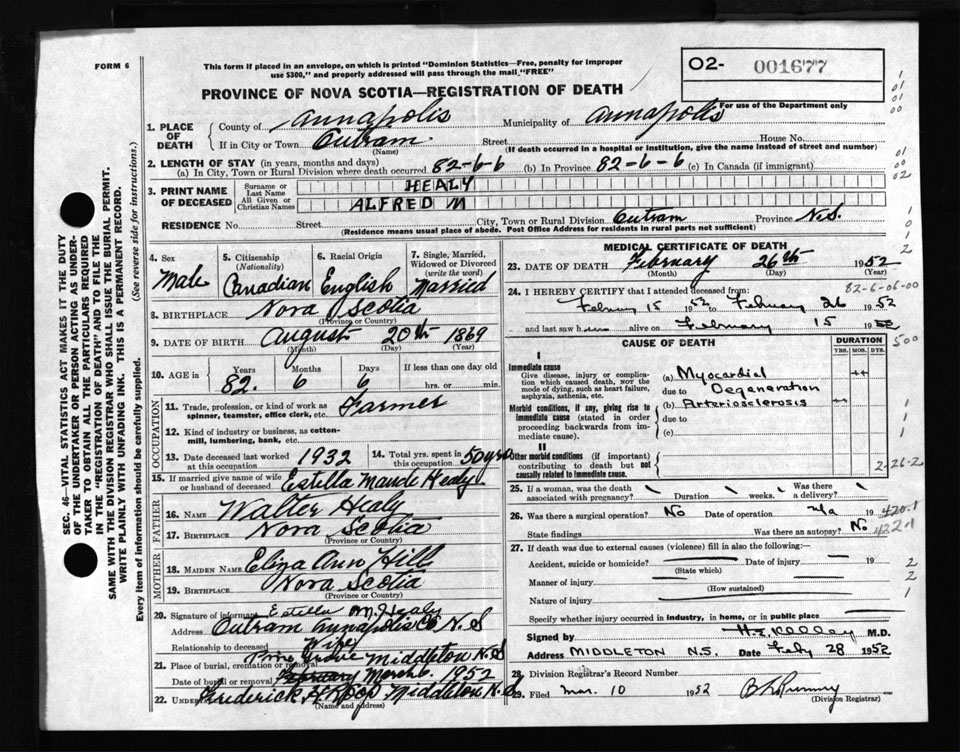 FORM 6
This form if placed in an envelope, on which is printed "Dominion Statistics—Free, penalty for improper
use $300," and properly addressed will pass through the mail "FREE"
O2- 001677
For use of the Department only
PROVINCE OF NOVA SCOTIA—REGISTRATION OF DEATH
SEC. 46—VITAL STATISTICS ACT MAKES IT THE DUTY
OF THE UNDERTAKER OR PERSON ACTING AS UNDER-
TAKER TO OBTAIN ALL THE PARTICULARS REQUIRED
IN THE "REGISTRATION OF DEATH" AND TO FILE THE
SAME WITH THE DIVISION REGISTRAR WHO SHALL ISSUE THE BURIAL PERMIT.
WRITE PLAINLY WITH UNFADING INK. THIS IS A PERMANENT RECORD.
Every item of information should be carefully supplied. (See reverse side for instructions.)
1. PLACE OF DEATH
County of Annapolis Municipality of Annapolis
If in City or Town Outram Street House No.
(Name) (If death occurred in a hospital or institution, give the name instead of street and number)
2. LENGTH OF STAY (in years, months and days)
(a) In City, Town or Rural Division where death occurred 82-6-6 (b) In Province 82-6-6 (c) In Canada (if immigrant)
3. PRINT NAME OF DECEASED
Surname or Last Name HEALY
All Given or Christian Names ALFRED M
RESIDENCE No. Street City, Town or Rural Division Outram Province N.S.
(Residence means usual place of abode. Post Office Address for residents in rural parts not sufficient)
4. Sex Male
5. Citizenship (Nationality) Canadian
6. Racial Origin English
7. Single, Married, Widowed or Divorced (write the word) Married
8. BIRTHPLACE Nova Scotia
(Province or Country)
9. DATE OF BIRTH August 20th 1869
(Month) (Day) (Year)
10. AGE in Years 82. Months 6 Days 6 If less than one day old
hrs. or min.
OCCUPATION
11. Trade, profession, or kind of work as
spinner, teamster, office clerk, etc. Farmer
12. Kind of industry or business, as cotton-
mill, lumbering, bank, etc.
13. Date deceased last worked at this occupation 1932
14. Total yrs. spent in this occupation 50 yrs
15. If married give name of wife
or husband of deceased Estella Maude Healy.
FATHER
16. NAME Walter Healy
17. BIRTHPLACE Nova Scotia
(Province or Country)
MOTHER
18. MAIDEN NAME Eliza Ann Hill
19. BIRTHPLACE Nova Scotia
(Province or Country)
20. Signature of informant Estella M. Healy
Address Outram Annapolis Co N.S
Relationship to deceased Wife
21. Place of burial, cremation or removal Pine Grove Middleton N.S
Date of burial or removal February March 6. 1952
22. Undertaker Frederick Middleton N.S
(Name and Address)
MEDICAL CERTIFICATE OF DEATH
23. DATE OF DEATH February 26th 1952
(Month) (Day) (Year)
82-6-06-00
24. I HEREBY CERTIFY that I attended deceased from:
February 15 1952 to February 26 1952
and last saw him alive on February 15 1952
CAUSE OF DEATH
DURATION
YRS. MOS. DYS.
I
Immediate cause
Give disease, injury or complica-
tion which caused death, NOT the
mode of dying, such as heart failure,
asphyxia, asthenia, etc.
(a) Myocardial
due to Degeneration
Morbid conditions, if any, giving rise to
immediate cause (stated in order
proceeding backwards from im-
mediate cause).
(b) Arteriosclerosis
due to
(c)
II
Other morbid conditions (if important)
contributing to death but not
causally related to immediate cause.
2-26-2
25. If a woman, was the death
associated with pregnancy? Duration weeks. Was there
a delivery?
26. Was there a surgical operation? No Date of operation n/a 19
State findings Was there an autopsy? No
420.1
422.1
27. If death was due to external causes (violence) fill in also the following:
Accident, suicide or homicide? Date of injury 19
(State which)
Manner of injury
(How sustained)
Nature of injury
Specify whether injury occurred in Industry, in home, or in public place
Signed by H.E. Kelley M.D.
Address MIDDLETON N.S. Date Feb 28 1952
28. Division Registrar's Record Number
29. Filed Mar. 10 1952
(Division Registrar)